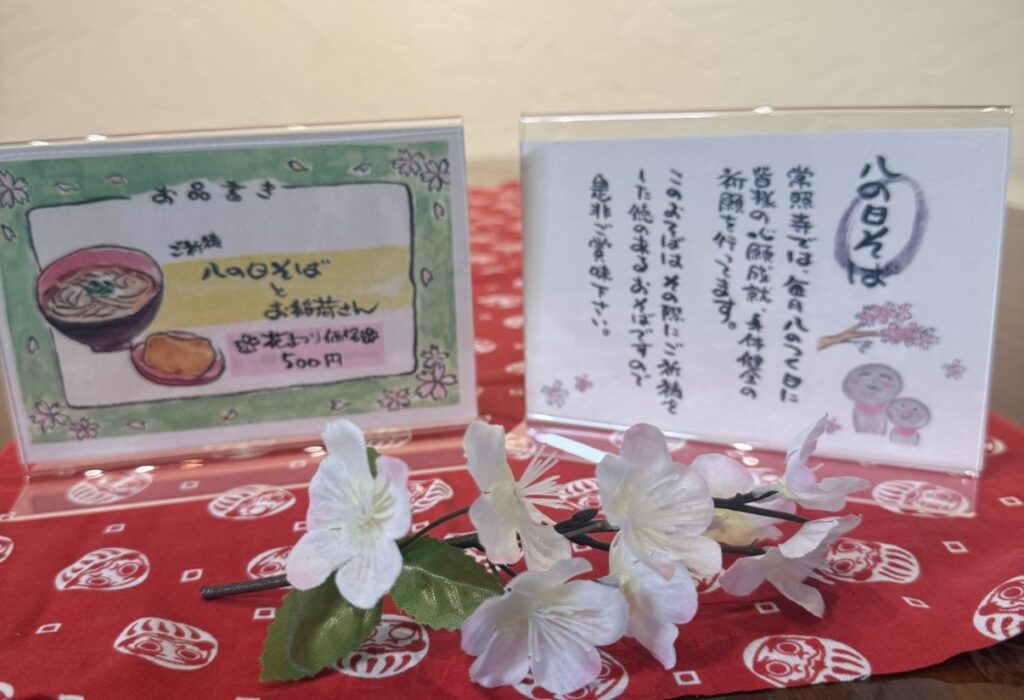 お品書き
ご祈祷
八の日そば
と
お稲荷さん
花まつり価格
500円
八の日そば
常照寺では、毎月八のつく日に
皆様の心願成就、身体健全の
祈願を行ってます。
このおそばは その際にご祈祷を
した他のあるおそばですので
是非ご賞味下さい。